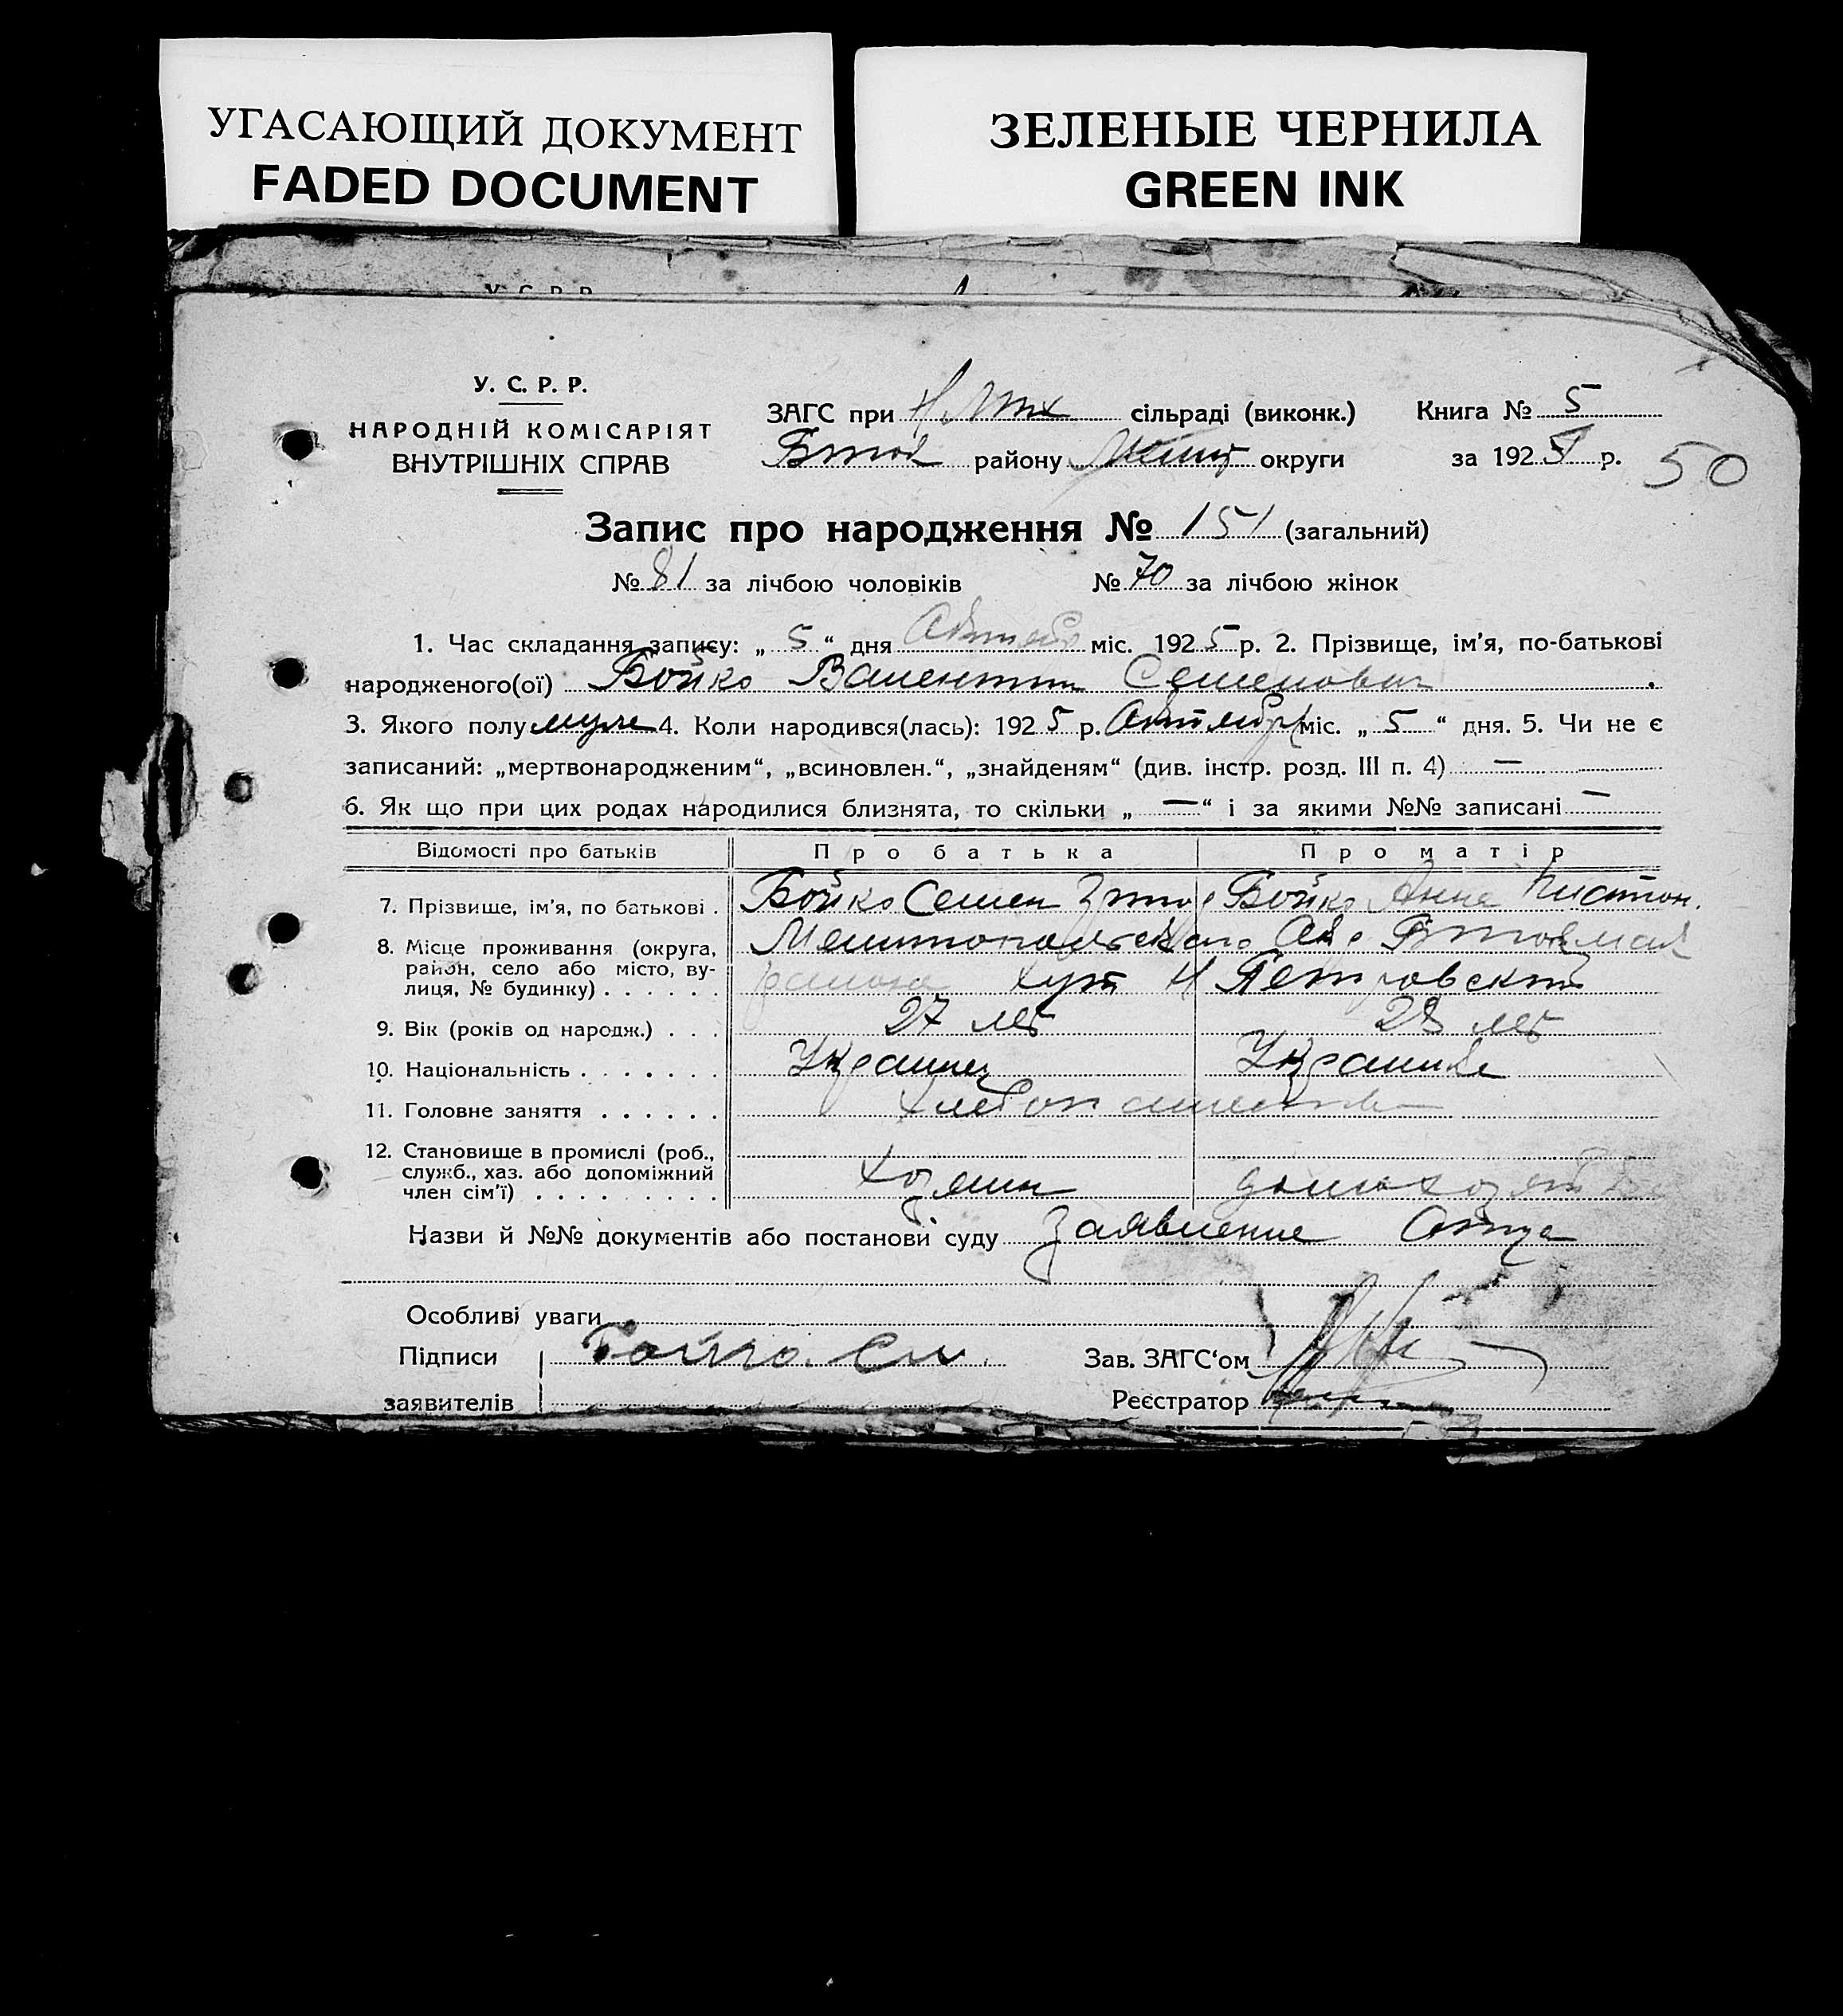 УГАСАЮЩИЙ ДОКУМЕНТ
FADED DOCUMENT
ЗЕЛЕНЫЕ ЧЕРНИЛА
GREEN INK
У. С. Р. Р.
НАРОДНІЙ КОМІСАРІЯТ
ВНУТРІШНІХ СПРАВ
ЗАГС при сільраді (виконк.) Книга № 5
району округи за 1925 р. 50
Запис про народження № 151 (загальний)
№ 81 за лічбою чоловіків № 70 за лічбою жінок
1. Час складання запису: „ 5 “ дня міс. 1925 р. 2. Прізвище, ім'я, по-батькові
народженого(ої) Бойко Валентин Семенович
3. Якого полу муж 4. Коли народився(лась): 1925 р. Октября міс. „ 5 “ дня. 5. Чи не є
записаний: „мертвонародженим“, „всиновлен.“, „знайденям“ (див. інстр. розд. III п. 4) —
6. Як що при цих родах народилися близнята, то скільки „ — “ і за якими №№ записані —
Відомості про батьків Про батька Про матір
7. Прізвище, ім'я, по батькові . Бойко Семен Бойко Анна
8. Місце проживання (округа, Мелитопольского
район, село або місто, ву- района хут Н Петровский
лиця, № будинку) . . . . . .
9. Вік (років од народж.) . . . 27 лет 28 лет
10. Національність . . . . . . . Украинец Украинка
11. Головне заняття . . . . . . Хлебопашество
12. Становище в промислі (роб.,
служб., хаз. або допоміжний
член сім'ї) . . . . . . . . . Хозяин домохозяйка
Назви й №№ документів або постанови суду Заявление Отца
Особливі уваги
Підписи Бойко. См. Зав. ЗАГС‘ом
заявителів Реєстратор